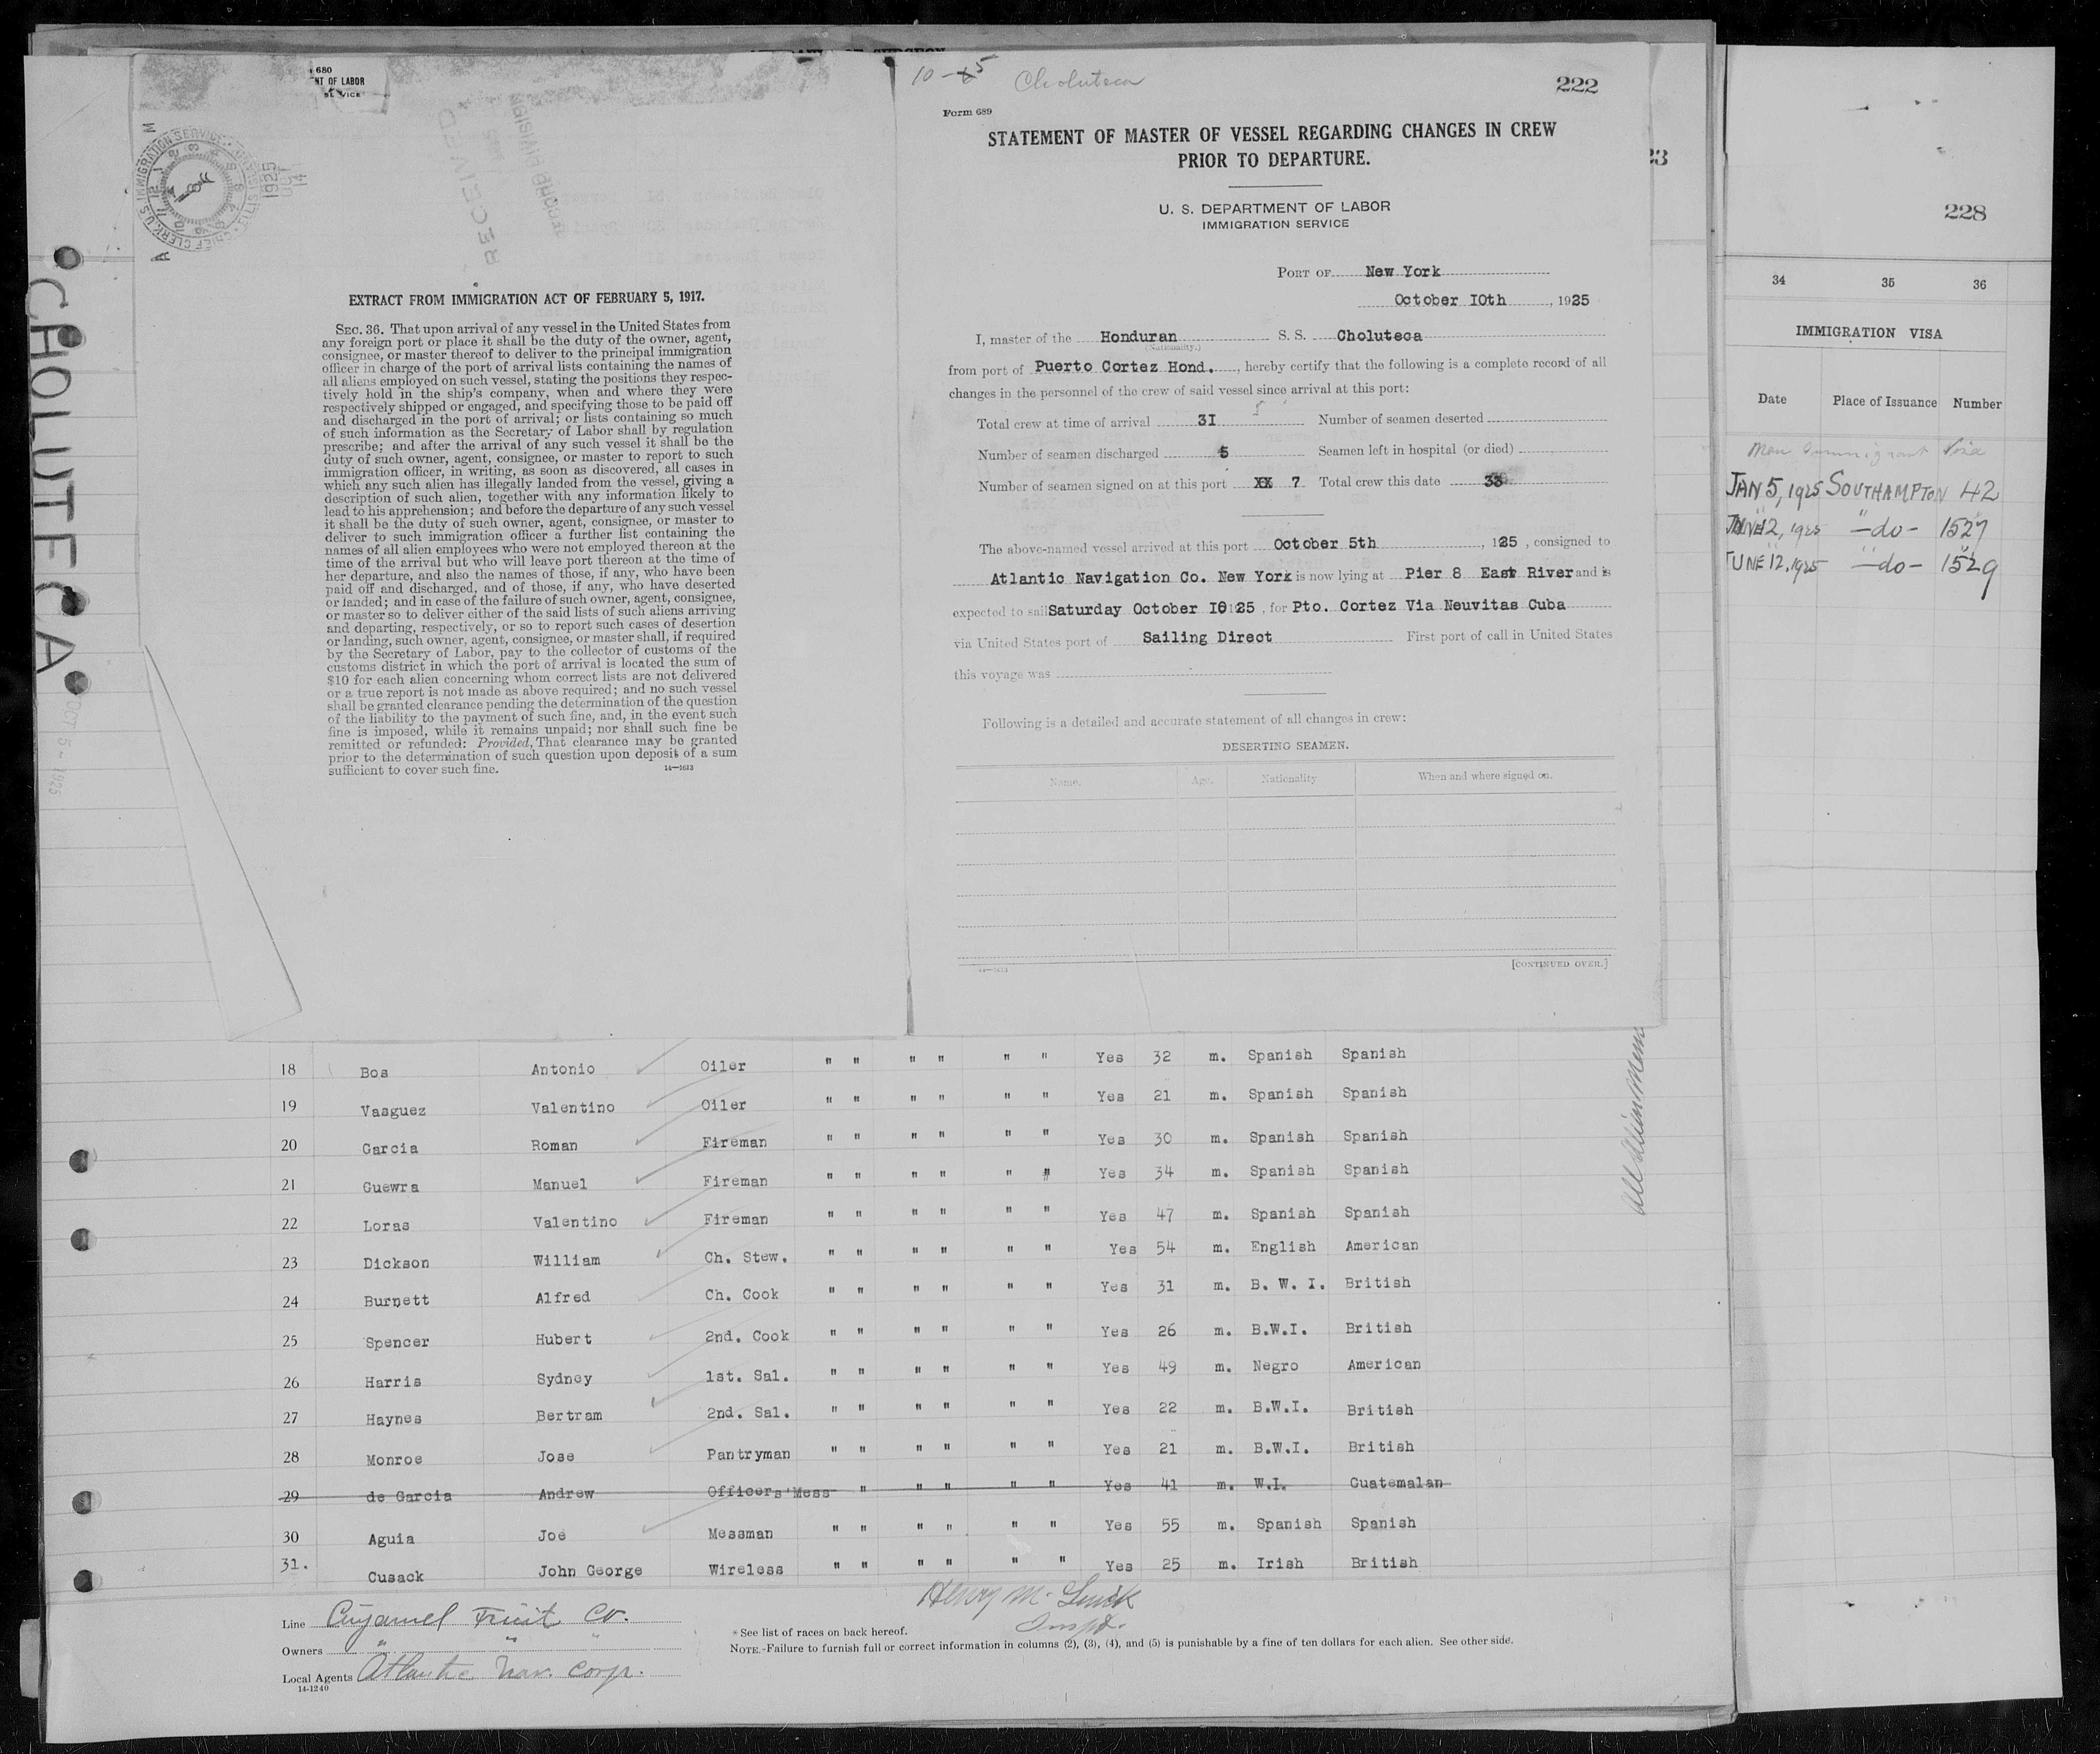 680
NT OF LABOR
SERVICE
RECEIVED
CHOLUTECA
OCT 5 - 1925
EXTRACT FROM IMMIGRATION ACT OF FEBRUARY 5, 1917.
SEC. 36. That upon arrival of any vessel in the United States from
any foreign port or place it shall be the duty of the owner, agent,
consignee, or master thereof to deliver to the principal immigration
officer in charge of the port of arrival lists containing the names of
all aliens employed on such vessel, stating the positions they respec-
tively hold in the ship's company, when and where they were
respectively shipped or engaged, and specifying those to be paid off
and discharged in the port of arrival; or lists containing so much
of such information as the Secretary of Labor shall by regulation
prescribe; and after the arrival of any such vessel it shall be the
duty of such owner, agent, consignee, or master to report to such
immigration officer, in writing, as soon as discovered, all cases in
which any such alien has illegally landed from the vessel, giving a
description of such alien, together with any information likely to
lead to his apprehension; and before the departure of any such vessel
it shall be the duty of such owner, agent, consignee, or master to
deliver to such immigration officer a further list containing the
names of all alien employees who were not employed thereon at the
time of the arrival but who will leave port thereon at the time of
her departure, and also the names of those, if any, who have been
paid off and discharged, and of those, if any, who have deserted
or landed; and in case of the failure of such owner, agent, consignee,
or master so to deliver either of the said lists of such aliens arriving
and departing, respectively, or so to report such cases of desertion
or landing, such owner, agent, consignee, or master shall, if required
by the Secretary of Labor, pay to the collector of customs of the
customs district in which the port of arrival is located the sum of
$10 for each alien concerning whom correct lists are not delivered
or a true report is not made as above required; and no such vessel
shall be granted clearance pending the determination of the question
of the liability to the payment of such fine, and, in the event such
fine is imposed, while it remains unpaid; nor shall such fine be
remitted or refunded: Provided, That clearance may be granted
prior to the determination of such question upon deposit of a sum
sufficient to cover such fine. 14—1613
10-5 Choluteca 222
Form 689
STATEMENT OF MASTER OF VESSEL REGARDING CHANGES IN CREW
PRIOR TO DEPARTURE.
U. S. DEPARTMENT OF LABOR
IMMIGRATION SERVICE
PORT OF New York
October IOth, 1925
I, master of the Honduran S. S. Choluteca
(Nationality.)
from port of Puerto Cortez Hond., hereby certify that the following is a complete record of all
changes in the personnel of the crew of said vessel since arrival at this port:
Total crew at time of arrival 3I Number of seamen deserted
Number of seamen discharged 5 Seamen left in hospital (or died)
Number of seamen signed on at this port XX 7 Total crew this date 33
The above-named vessel arrived at this port October 5th, 125, consigned to
Atlantic Navigation Co. New York is now lying at Pier 8 East River and is
expected to sail Saturday October I0 125, for Pto. Cortez Via Neuvitas Cuba
via United States port of Sailing Direct First port of call in United States
this voyage was
Following is a detailed and accurate statement of all changes in crew:
DESERTING SEAMEN.
Name. Age. Nationality When and where signed on.
14—1613 [CONTINUED OVER.]
23
228
34 35 36
IMMIGRATION VISA
Date Place of Issuance Number
Non Immigrant Visa
JAN 5, 1925 SOUTHAMPTON 42
JUNE 12, 1925 " -do- 1527
JUNE 12, 1925 " -do- 1529
18 Bos Antonio Oiler " " " " " " Yes 32 m. Spanish Spanish
19 Vasguez Valentino Oiler " " " " " " Yes 21 m. Spanish Spanish
20 Garcia Roman Fireman " " " " " " Yes 30 m. Spanish Spanish
21 Guewra Manuel Fireman " " " " " # Yes 34 m. Spanish Spanish
22 Loras Valentino Fireman " " " " " " Yes 47 m. Spanish Spanish
23 Dickson William Ch. Stew. " " " " " " Yes 54 m. English American
24 Burnett Alfred Ch. Cook " " " " " " Yes 31 m. B. W. I. British
25 Spencer Hubert 2nd. Cook " " " " " " Yes 26 m. B.W.I. British
26 Harris Sydney 1st. Sal. " " " " " " Yes 49 m. Negro American
27 Haynes Bertram 2nd. Sal. " " " " " " Yes 22 m. B.W.I. British
28 Monroe Jose Pantryman " " " " " " Yes 21 m. B.W.I. British
29 de Garcia Andrew Officers'Mess " " " " " Yes 41 m. W.I. Guatemalan
30 Aguia Joe Messman " " " " " " Yes 55 m. Spanish Spanish
31. Cusack John George Wireless " " " " " " Yes 25 m. Irish British
Line Cuyamel Fruit Co.
Owners " " "
Local Agents Atlantic Nav. Corp.
14-1240
Henry M.
Inspt.
*See list of races on back hereof.
NOTE.-Failure to furnish full or correct information in columns (2), (3), (4), and (5) is punishable by a fine of ten dollars for each alien. See other side.